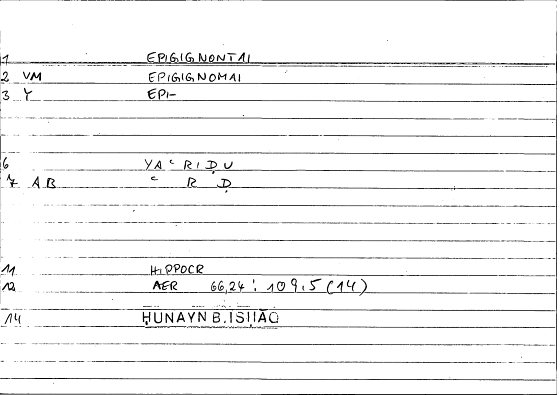 1 EPIGIGNONTAI
2 VM EPIGIGNOMAI
3 Y EPI-
6 YAʿRIḌU
7 AB ʿ R Ḍ
11 HIPPOCR
12 AER 66,24 : 109.5 (14)
14 ḤUNAYN B. ISḤĀQ